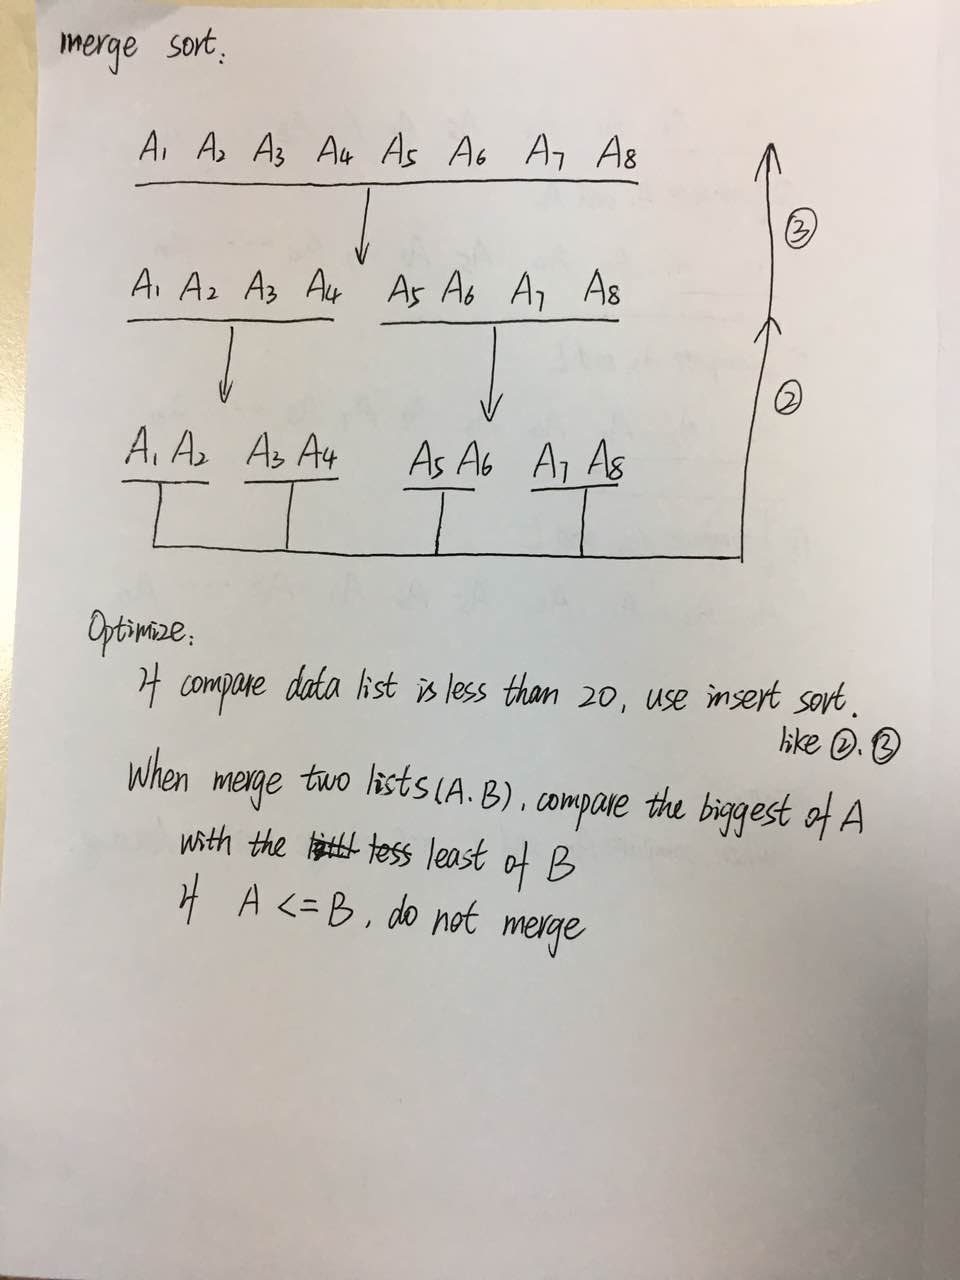 merge sort:
A1 A2 A3 A4 A5 A6 A7 A8
③
A1 A2 A3 A4 A5 A6 A7 A8
②
A1 A2 A3 A4 A5 A6 A7 A8
Optimize:
If compare data list is less than 20, use insert sort.
like ②.③
When merge two lists(A.B), compare the biggest of A
with the less least of B
If A <= B, do not merge